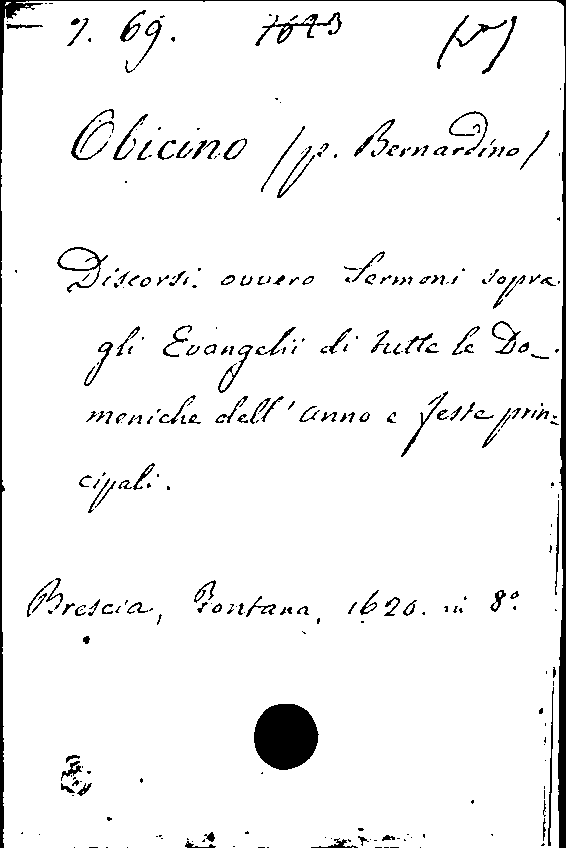 7. 69. 1623
Obicino (p. Bernardino)
Discorsi ovvero Sermoni sopra
gli Evangelii di tutte le Do-
meniche dell'anno e feste prin=
cipali.
Brescia, Fontana, 1620. in 8°.